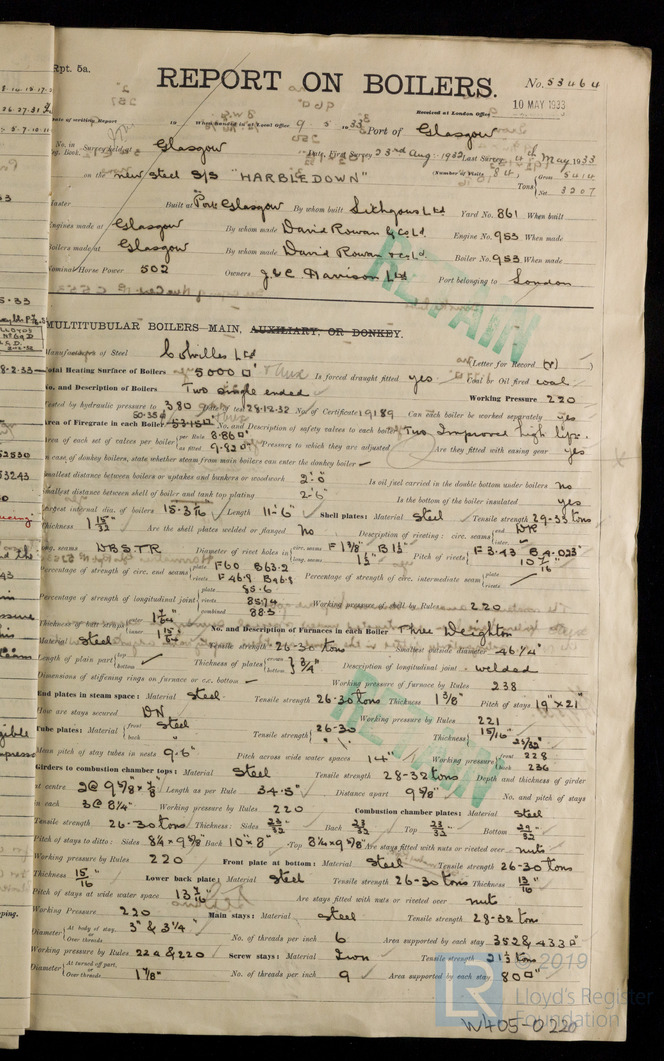 Rpt. 5a.
REPORT ON BOILERS.
No. 53464
10 MAY 1933
Received at London Office
Date of writing Report 19 When handed in at Local Office 9. 5. 1933 Port of Glasgow
No. in Reg. Book. Survey held at Glasgow Date, First Survey 23rd Aug: 1932 Last Survey May 1933
on the new steel S/S "HARBLEDOWN" (Number of Visits) Gross 5414
Tons Net 3207
Master Built at Port Glasgow By whom built Lithgows Ltd Yard No. 861 When built
Engines made at Glasgow By whom made David Rowan & Co Ld. Engine No. 953 When made
Boilers made at Glasgow By whom made David Rowan & Co Ld. Boiler No. 953 When made
Nominal Horse Power 502 Owners J & C Harrison Ltd Port belonging to London
RETAIN
MULTITUBULAR BOILERS MAIN, AUXILIARY, OR DONKEY.
Manufacturers of Steel Colvilles Ltd (Letter for Record (r) )
Total Heating Surface of Boilers 5000 □' Is forced draught fitted yes Coal or Oil fired coal
No. and Description of Boilers Two single ended Working Pressure 220
Tested by hydraulic pressure to 380 Date of test 28.12.32 No. of Certificate 19189 Can each boiler be worked separately yes
Area of Firegrate in each Boiler 53.15□' 50.35□ No. and Description of safety valves to each boiler Two Improved high lift.
Area of each set of valves per boiler per Rule 8.86□" as fitted 9.82□" Pressure to which they are adjusted Are they fitted with easing gear yes
In case of donkey boilers, state whether steam from main boilers can enter the donkey boiler –
Smallest distance between boilers or uptakes and bunkers or woodwork 2'-0" Is oil fuel carried in the double bottom under boilers No
Smallest distance between shell of boiler and tank top plating 2'-6" Is the bottom of the boiler insulated yes
Largest internal dia. of boilers 15-3 7/16 Length 11'-6" Shell plates: Material Steel Tensile strength 29-33 tons
Thickness 1 15/32" Are the shell plates welded or flanged No Description of riveting: circ. seams end DR inter.
long. seams DBS.TR Diameter of rivet holes in circ. seams F 1 3/8" B 1 1/2" long. seams 1 1/2" Pitch of rivets F 3.43 B 4.023" 10 7/16
Percentage of strength of circ. end seams plate F 60 B 63.2 rivets F 46.9 B 46.8 Percentage of strength of circ. intermediate seam plate rivets
Percentage of strength of longitudinal joint plate 85.6 rivets 85.74 combined 88.5 Working pressure of shell by Rules 220
Thickness of butt straps outer inner No. and Description of Furnaces in each Boiler Three Deighton
Material Steel Tensile strength 26-30 tons Smallest outside diameter 46 1/4"
Length of plain part top bottom Thickness of plates crown bottom 3/4" Description of longitudinal joint welded
Dimensions of stiffening rings on furnace or c.c. bottom – Working pressure of furnace by Rules 238
End plates in steam space: Material Steel Tensile strength 26-30 tons Thickness 1 3/8" Pitch of stays 19" x 21"
How are stays secured DN Working pressure by Rules 221
Tube plates: Material front back Steel " Tensile strength 26-30 " Thickness 15/16" 25/32"
Mean pitch of stay tubes in nests 9.6" Pitch across wide water spaces 14" Working pressure front 228 back 236
Girders to combustion chamber tops: Material Steel Tensile strength 28-32 tons Depth and thickness of girder
at centre 2@ 9 5/8" x 7/8 Length as per Rule 34.5" Distance apart 9 5/8" No. and pitch of stays
in each 3@ 8 1/4" Working pressure by Rules 220 Combustion chamber plates: Material Steel
Tensile strength 26-30 tons Thickness: Sides 23/32 Back 23/32 Top 23/32 Bottom 29/32
Pitch of stays to ditto: Sides 8 1/4 x 9 5/8" Back 10" x 8" Top 8 1/4 x 9 5/8" Are stays fitted with nuts or riveted over nuts
Working pressure by Rules 220 Front plate at bottom: Material Steel Tensile strength 26-30 tons
Thickness 15/16" Lower back plate: Material Steel Tensile strength 26-30 tons Thickness 13/16"
Pitch of stays at wide water space 13 7/16" Are stays fitted with nuts or riveted over nuts
Working Pressure 220 Main stays: Material Steel Tensile strength 28-32 tons
Diameter At body of stay, or Over threads 3" & 3 1/4" No. of threads per inch 6 Area supported by each stay 352 & 433□"
Working pressure by Rules 222 & 220 Screw stays: Material Iron Tensile strength 21 1/2 tons
Diameter At turned off part, or Over threads 1 7/8" No. of threads per inch 9 Area supported by each stay 80□"
RETAIN
LR
© 2019
Lloyd's Register
Foundation
W405-0220